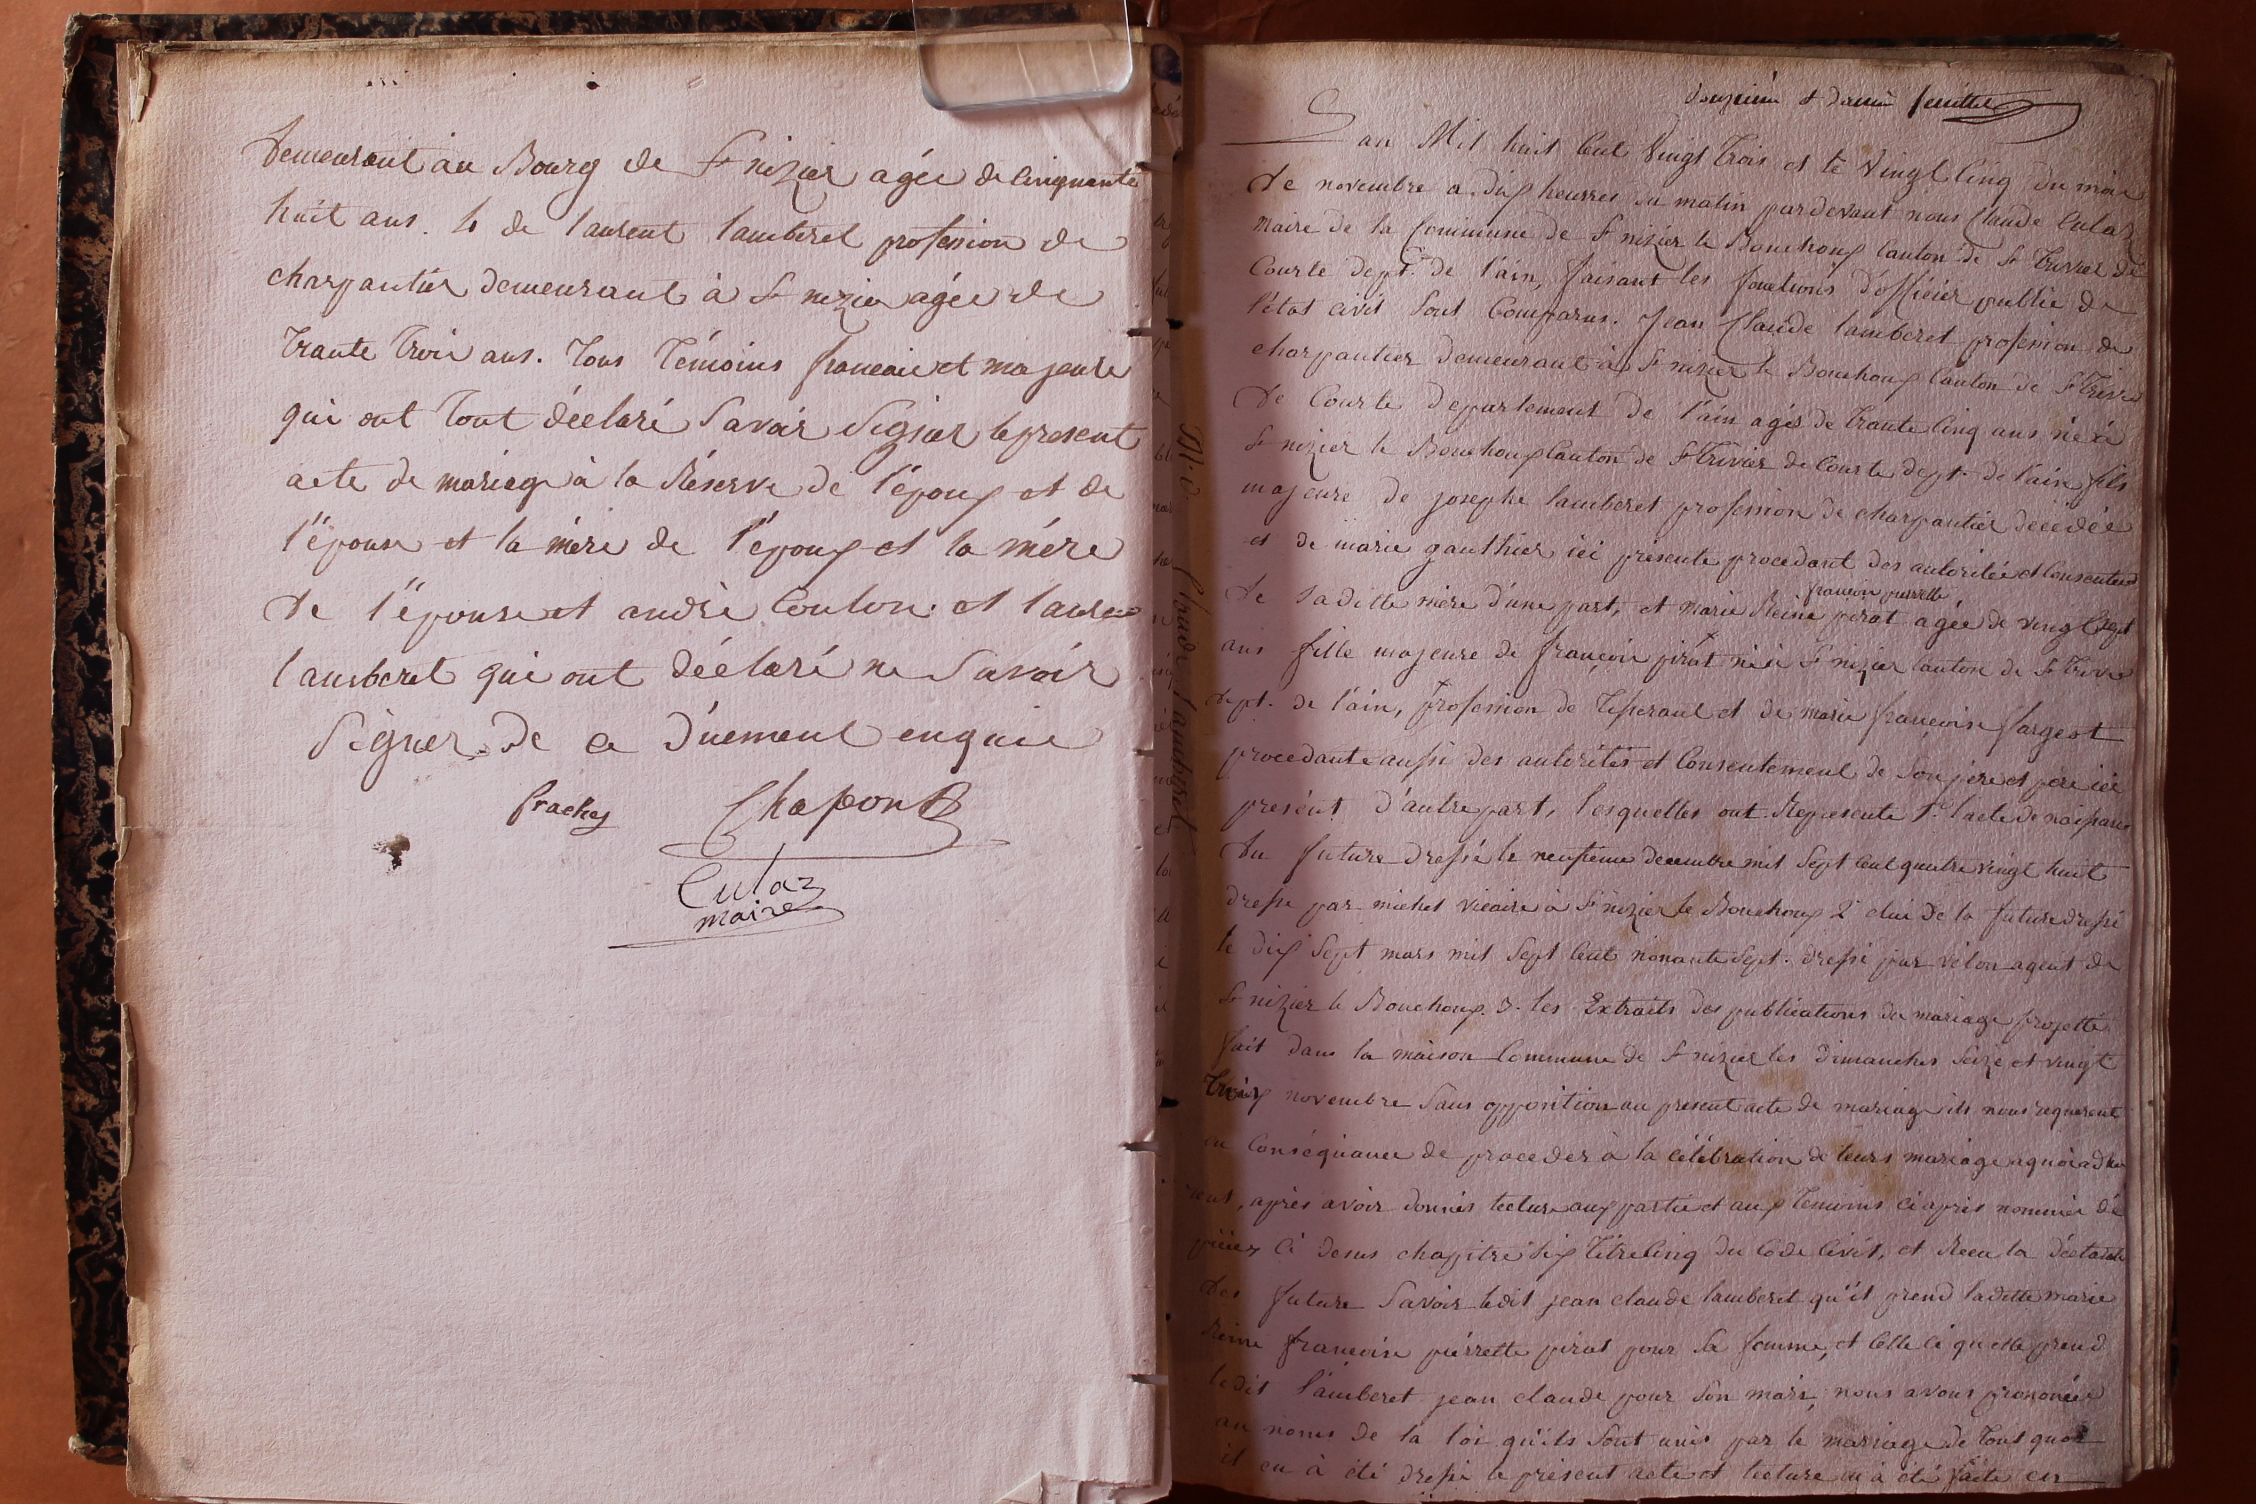 demeurant au Bourg de St nizier agée de Cinquante
huit ans. 4 de laurent lamberet profession de
charpantier demeurant à St nizier agée de
Trante Trois ans. Tous Témoins francaie et majeure
qui ont Tout déclaré Savoir Signer le present
acte de mariage à la Réserve de l'époux et de
l'épouse et la mére de l'époux et la mére
de l'épouse et andré Coulon et laurent
lamberet qui ont déclaré ne Savoir
Signer de ce duement enquie
Chapon
Culaz
maire
M. d Claude lamberet
douzieme et dernier feuillet
Lan Mil huit Cent Vingt Trois et le Vingt Cinq du mois
de novembre a dix heurres du matin pardevant nous Claude Culaz
Maire de la Commune de St nizier le Bouchoux Canton de St Trivier de
Courte dept. de l'ain, faisant les fonctions d'officier public de
l'état civil Sont Comparus. Jean Claude lamberet profession de
charpantier demeurant à St nizier le Bouchoux Canton de St Trivier
de Courte departement de l'ain agés de Trante Cinq ans né à
St nizier le Bouchoux Canton de St Trivier de Courte dept. de l'ain fils
majeure de josephe lamberet profession de charpantier decédée
et de marie gauthier ici presente procedant des autorités et Consentement
francoise pierrette
de Saditte mére d'une part, et marie Reine pirat agée de vingt Sept
ans fille majeure de francois pirat né à St nizier Canton de St Trivier
dept. de l'ain, profession de Tisserant et de marie francoise fargeot
procedante aussi des autorités et Consentement de Son pére et pére ici
présent d'autre part, lesquelles ont Represente 1° l'acte de naissance
du future dressé le neufieme decembre mil Sept Cent quatre vingt huit
dresse par michel vicaire à St nizier le Bouchoux 2° clui de la future dressé
le dix Sept mars mil Sept Cent nonante Sept. dressé par agent de
St nizier le Bouchoux 3. les Extraits des publications du mariage projetté
fait dans la maison Commune de St nizier les dimanches Seize et vingt
Trois novembre Sans opposition au present acte de mariage ils nous requerent
en Conséquance de proceder à la célébration de leurs mariage aquoi adhe
rent, après avoir donnés lecture aux partie et aux Temoins ci après nommée dé
piéces Ci desus chapitre Six Titre Cinq du Code Civil, et Recu la déclaration
des future Savoir ledit jean claude lamberet qu'il prend laditte marie
Reine francoise pierrette pirat pour Sa femme, et Celle ci quelle prend
ledit lamberet jean claude pour Son mari, nous avons prononcée
au noms de la loi qu'ils Sont unis par le mariage de Tout quoi
il en à été dressé le présent acte et lecture en à été faite en